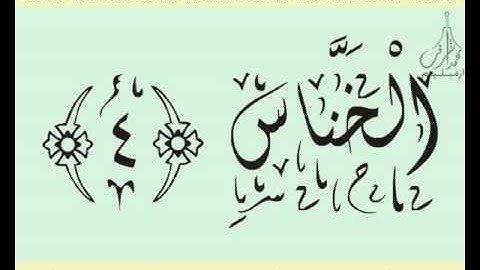 الْخَنَّاسِ ﴿٤﴾